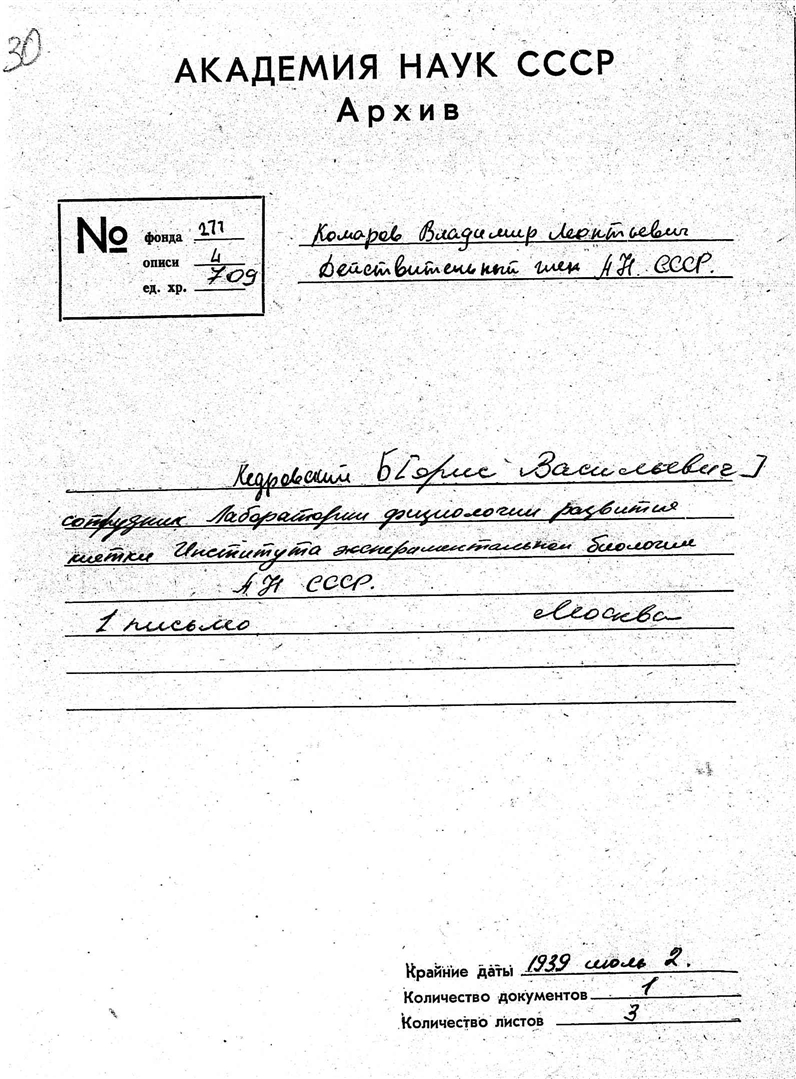 30
АКАДЕМИЯ НАУК СССР
Архив
№
фонда 277
описи 4
ед. хр. 709
Комаров Владимир Леонтьевич
Действительный член АН СССР.
Кедровский Б[орис Васильевич]
сотрудник Лаборатории физиологии развития
клетки Института экспериментальной биологии
АН СССР.
1 письмо Москва
Крайние даты 1939 июль 2.
Количество документов 1
Количество листов 3